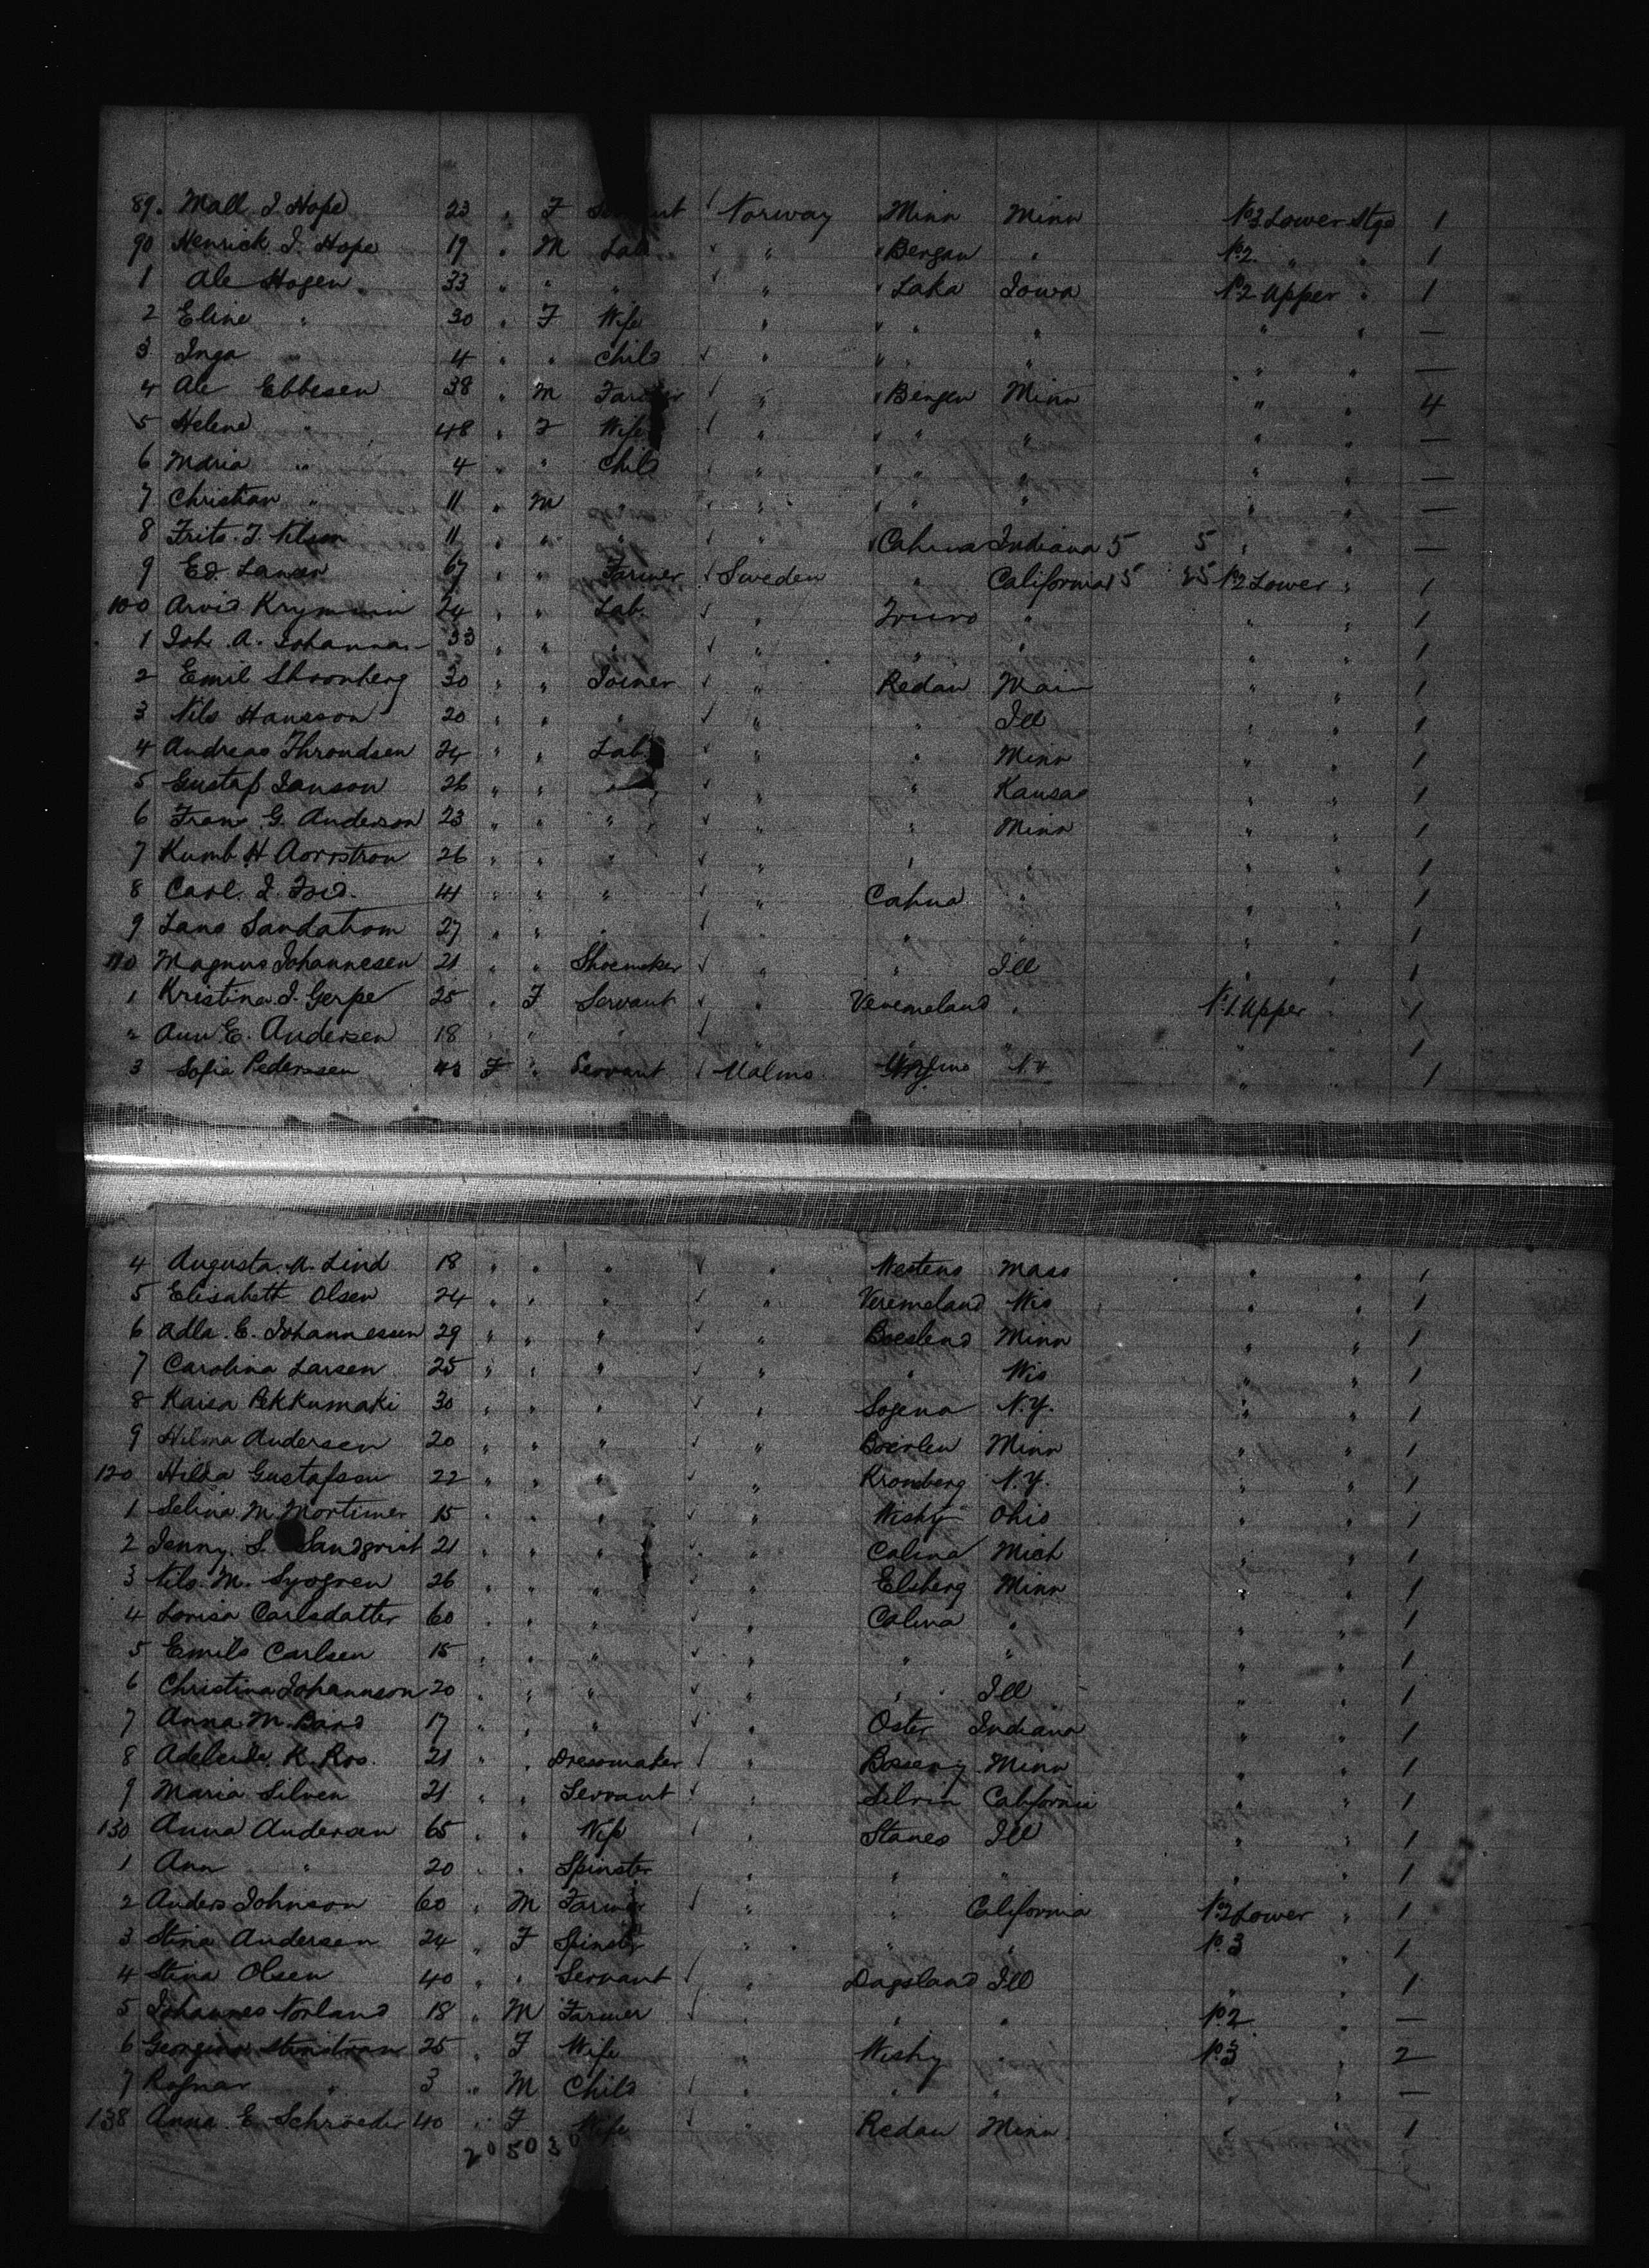 89. Mall J. Hope 23 " F Servant ✓ Norway Minn Minn No 3 Lower Stge 1
90 Henrick J. Hope 19 " M Lab. ✓ " Bergan " No 2 " " 1
1 Ale Hogen 33 " " " ✓ " Laka Iowa No 2 Upper " 1
2 Eline " 30 " F Wife " " " " " —
3 Inga " 4 " " Child ✓ " " " " " —
4 Ale Ebbesen 38 " M Farmer ✓ " Bergen Minn " " 4
5 Helene " 48 " F Wife ✓ " " " " " —
6 Maria " 4 " " Child ✓ " " " " " —
7 Christian " 11 " M " ✓ " " " " " —
8 Frits. J. Nilson 11 " " " ✓ " Cahua Indiana 5 5 " " —
9 Ed. Lansen 67 " " Farmer ✓ Sweden " California 5 No 2 Lower " 1
100 Arvid 24 " " Lab. ✓ " " " " 1
1 Joh. A. Johannas 33 " " " ✓ " " " " " 1
2 Emil 30 " " Joiner ✓ " Redau " " 1
3 Nils Hansson 20 " " " ✓ " " Ill " " 1
4 Andreas Throndsen 24 " " Lab. ✓ " " Minn " " 1
5 Gustaf Janson 26 " " " ✓ " " Kansas " " 1
6 Frans G. Anderson 23 " " " ✓ " " Minn " " 1
7 H 26 " " " ✓ " " " " " 1
8 Carl. J. " " " ✓ " Cahua " " " 1
9 Lans Sandatrom 27 " " " ✓ " " " " " 1
110 Magnus Johannesen 21 " " Shoemaker ✓ " " Ill " " 1
1 Kristina J. Gerpe 25 " F Servant ✓ " Veremeland " No 1 Upper " 1
2 Ann E. Andersen 18 " " " ✓ " " " " " 1
3 Sofia Pedersen 43 F " Servant ✓ Malmo N.Y " " 1
4 Augusta. A. Lind 18 " " " ✓ " Westens Mass " " 1
5 Elisabett Olsen 24 " " " ✓ " Veremeland Wis " " 1
6 Adla. E. Johannessen 29 " " " ✓ " Boeslend Minn " " 1
7 Carolina Larsen 25 " " " ✓ " " Wis " " 1
8 Kaisa Pekkumaki 30 " " " ✓ " Sogena N.Y. " " 1
9 Hilma Andersen 20 " " " ✓ " Minn " " 1
120 Hilda Gustafson 22 " " " ✓ " Kronberg N.Y. " " 1
1 Selina M. Mortimer 15 " " " ✓ " Wisby Ohio " " 1
2 Jenny. S. Sandqvist 21 " " " ✓ " Calina Mich " " 1
3 Nils. M. Syogren 26 " " " ✓ " Elsberg Minn " " 1
4 Lovisa Carlsdatter 60 " " " ✓ " Calina " " " 1
5 Emils Carlsen 15 " " " ✓ " " " " " 1
6 Christina Johannson 20 " " " ✓ " " Ill " " 1
7 Anna M. 17 " " " ✓ " Oster Indiana " " 1
8 Adeleide. K. Ros. 21 " " Dressmaker ✓ " Minn " " 1
9 Maria Silven 21 " " Servant ✓ " Selvin California " " 1
130 Anna Andersen 65 " " Wife ✓ " Stanes Ill " " 1
1 Ann " 20 " " Spinster " " " " " 1
2 Anders Johnson 60 " M Farmer ✓ " " California No 2 Lower " 1
3 Stina Andersen 24 " F Spinster " " " No 3 " 1
4 Stina Olsen 40 " " Servant ✓ " Dagsland Ill " " 1
5 Johannes Norland 18 " M Farmer ✓ " " " No 2 " —
6 Georgina 25 " F Wife " Wisby " No 3 " 2
7 Ragnar " 3 " M Child ✓ " " " " " —
138 Anna. E. Schroeder 40 " F Wife ✓ " Redau Minn " " 1
20 50 30